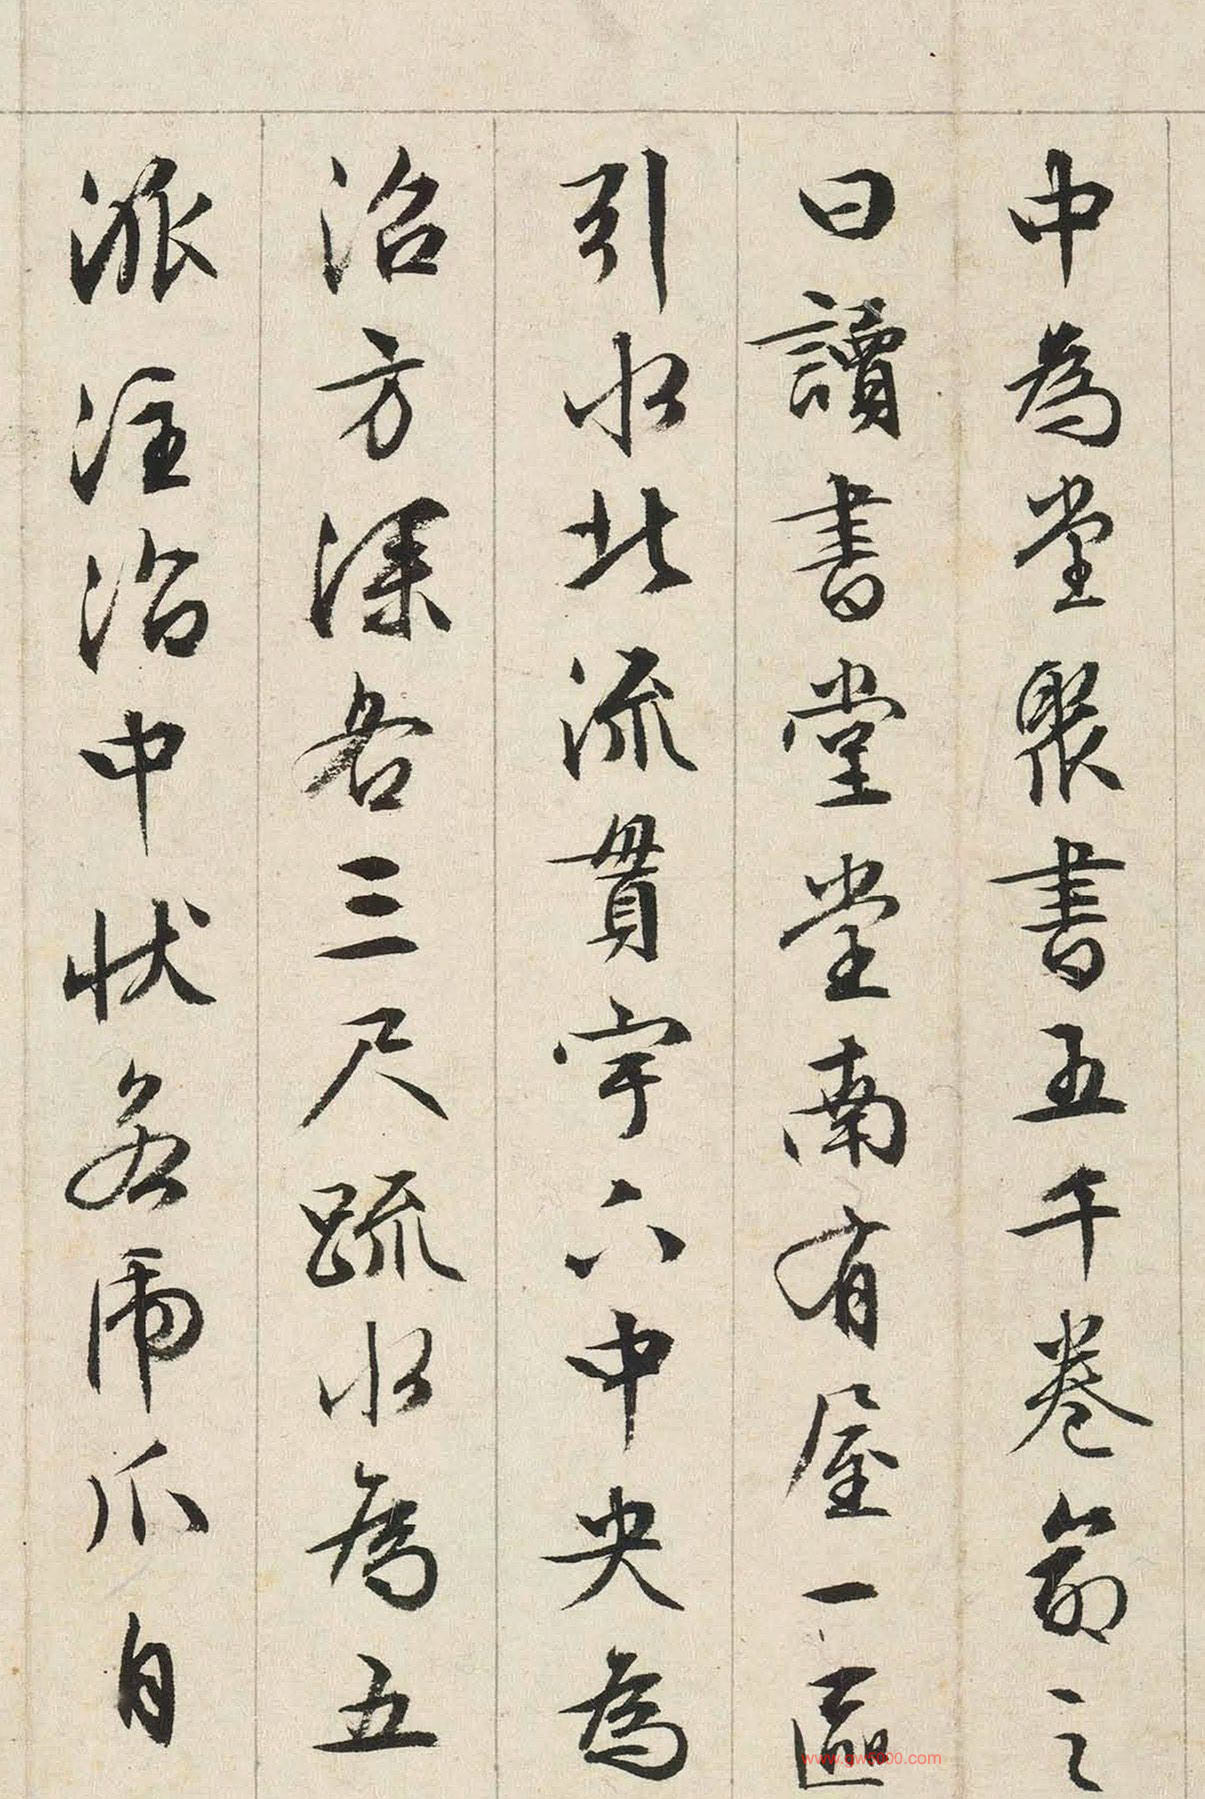 中為堂聚書五千卷命之
曰讀書堂堂南有屋一區
引水北流貫宇下中央為
沼方深各三尺疏水為五
派注沼中狀若虎爪自
www.yw1100.com